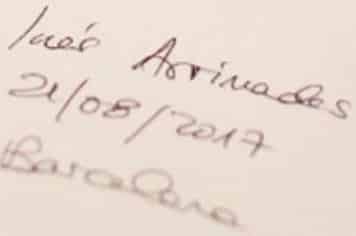 Inés Arrimadas
21/08/2017
Barcelona